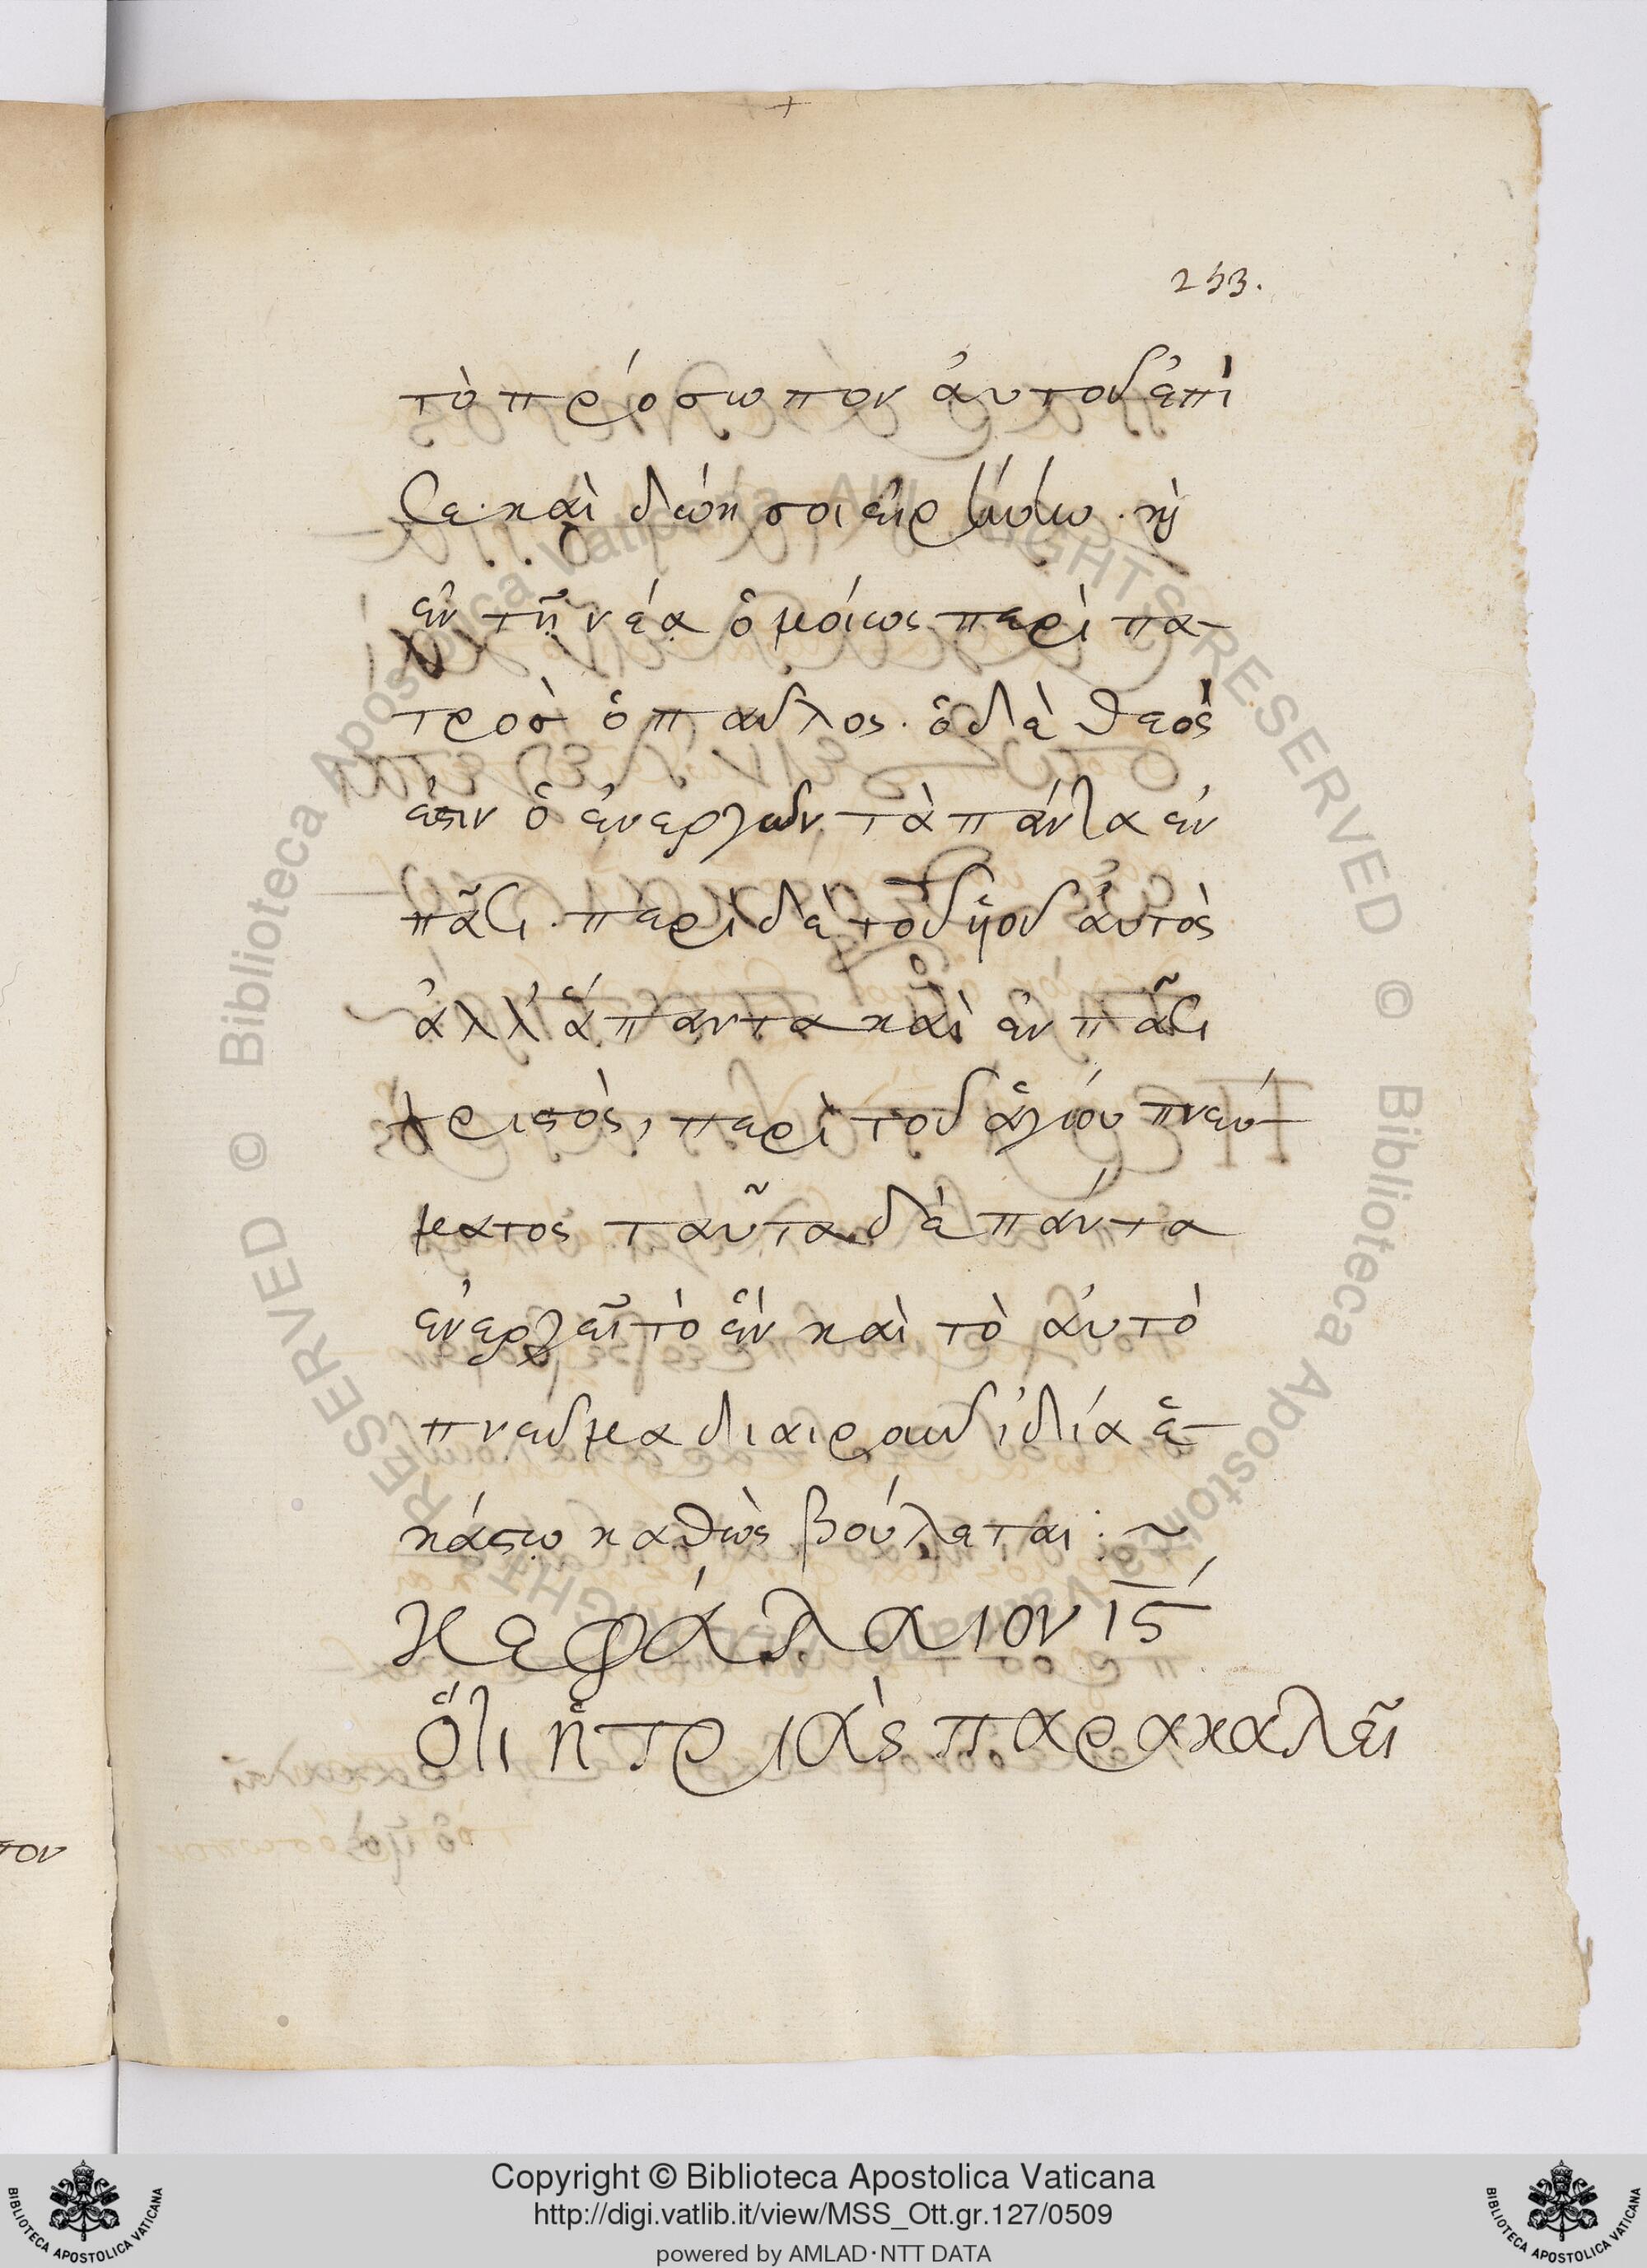 253.
τὸ πρόσωπον ἀυτοῦ ἐπὶ
σε· καὶ δώη σοι εἰρήνην. κὶ
ἐν τῇ νέα ὁμοίως περὶ πα-
τροσ ὁ παῦλος. ὁ δὲ θεός
ἐστιν ὁ ἐνεργῶν τὰ πάντα ἐν
πᾶσι. περὶ δὲ τοῦ ὑοῦ ἀυτὸς
ἀλλ' ἅπαντα καὶ ἐν πᾶσι
χριστὸς, περὶ τοῦ ἁγίου πνεύ-
ματος ταῦτα δὲ πάντα
ἐνεργεῖ τὸ ἓν καὶ τὸ ἀυτὸ
πνεῦμα διαιροῦν ἰδία ἑ-
κάστω καθὼς βούλεται: ~
κεφάλαιον ις´
Ὅτι ἡ τριὰς παρακαλεῖ
τον
Copyright © Biblioteca Apostolica Vaticana
http://digi.vatlib.it/view/MSS_Ott.gr.127/0509
powered by AMLAD·NTT DATA
BIBLIOTECA APOSTOLICA VATICANA
BIBLIOTECA APOSTOLICA VATICANA
© Biblioteca Apostolica Vaticana ALL RIGHTS RESERVED © Biblioteca Apostolica Vaticana ALL RIGHTS RESERVED